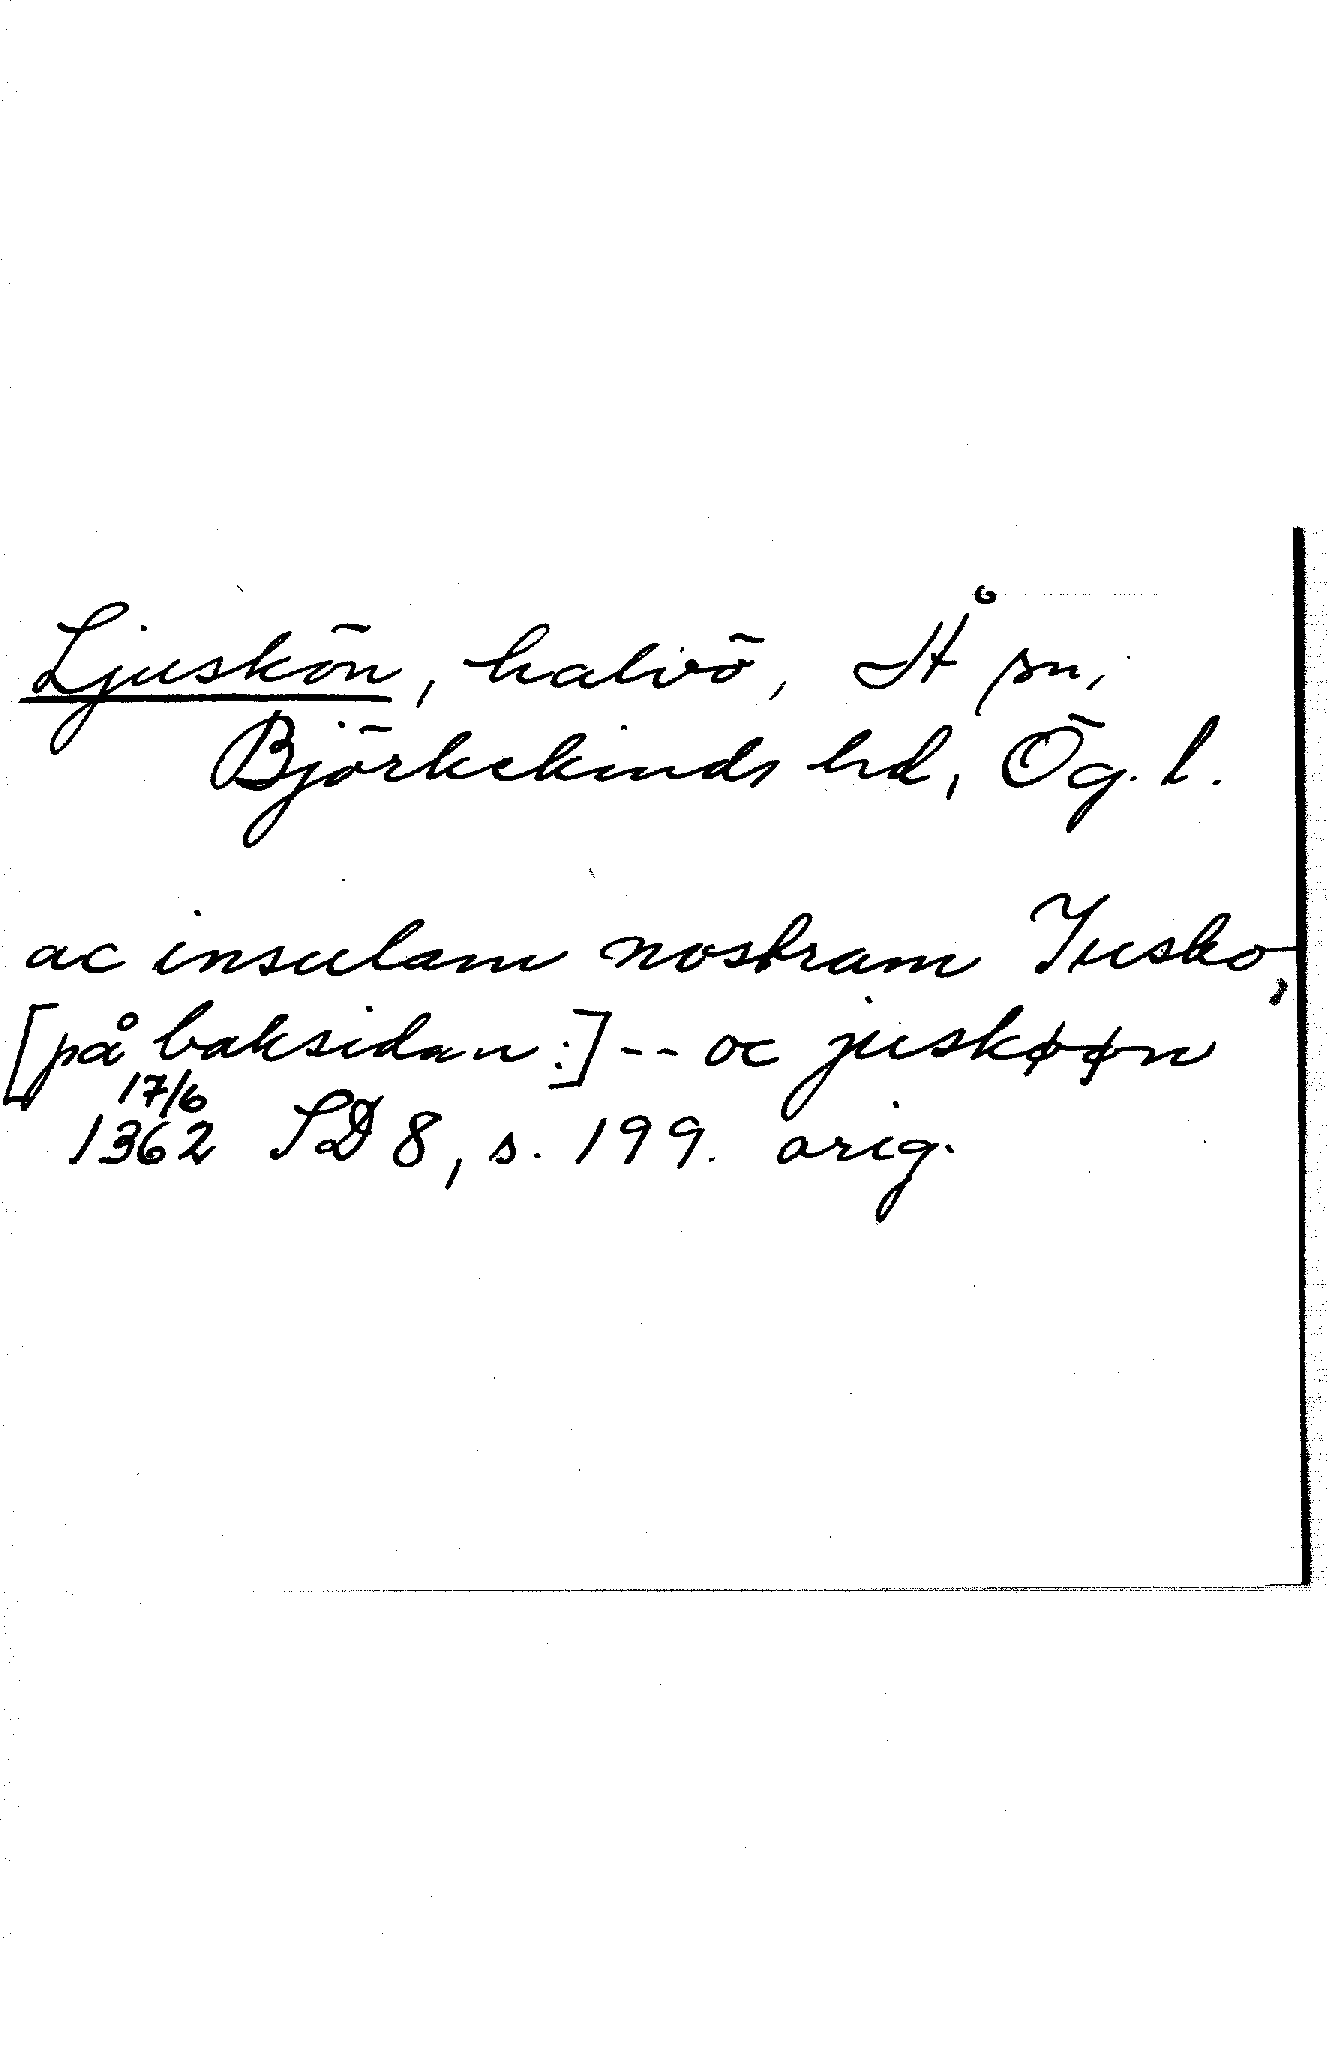 Ljuskön, halvö, Å sn,
Björkekinds hd, Ög. l.
ac insulam nostram Jusko,
[på baksidan:] -- oc juskøøn
17/6
1362 SD 8, s. 199. orig.